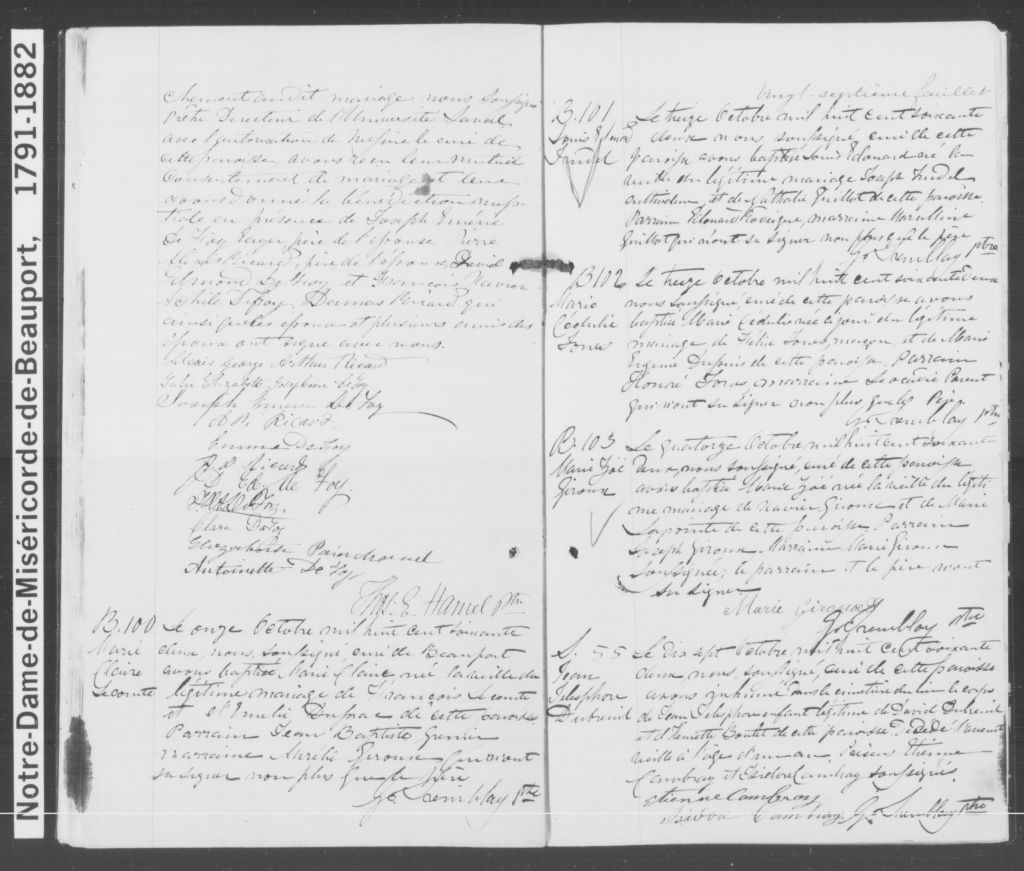 Notre-Dame-de-Miséricorde-de-Beauport, 1791-1882
mariage, nous soussigné
Prêtre Directeur de l'Université Laval
avec l'autorisation de Messire le curé de
cette paroisse, avons reçu leur mutuel
consentement de mariage et leur
avons donné la bénédiction nup-
tiale en présence de Joseph
De Foy père de l'épouse, Pierre
Ricard, père de l'époux, David
De Foy et François Xavier
De Foy, Damas Ricard qui
ainsi que les époux et plusieurs amis des
époux ont signé avec nous.
Alexis George Arthur Ricard
Julie Elizabeth Josephine De Foy
Joseph De Foy
Ricard
Emma De Foy
Ricard
Ed. De Foy
De Foy
Clara De Foy
Painchaud
Antoinette De Foy
Hamel Ptre
B. 100
Marie
Claire
Lecomte
Le onze Octobre mil huit cent soixante
deux, nous, soussigné curé de Beauport
avons baptisé Marie Claire, née la veille du
légitime mariage de François Lecomte
et d'Emélie Dufrac de cette paroisse
Parrain Jean Baptiste Grenier
marraine Giroux qui n'ont
su signer non plus que le père
G. Tremblay Ptre
Vingt-septième feuillet
B. 101
Louis Edouard
Trudel
Le treize Octobre mil huit cent soixante
deux nous soussigné, curé de cette
paroisse avons baptisé Louis Edouard né la
veille du légitime mariage Joseph Trudel
cultivateur, et de Nathalie Guillot de cette paroisse.
Parrain Edouard Rodrigue, marraine Marcelline
Guillot qui n'ont su signer non plus que le père
G. Tremblay Ptre
B. 102
Marie
Cédulie
Le treize Octobre mil huit cent soixante deux
nous soussigné, curé de cette paroisse avons
baptisé Marie Cédulie née ce jour du légitime
mariage de maçon, et de Marie
Eugénie Dupuis de cette paroisse. Parrain
Honoré marraine Léocadie Parent
qui n'ont su signer non plus que le Père.
G. Tremblay Ptre
B. 103
Marie Zoé
Giroux
Le quatorze Octobre mil huit cent soixante
deux, nous soussigné, curé de cette paroisse
avons baptisé Marie Zoé née la veille du légiti-
me mariage de Xavier Giroux et de Marie
Lapointe de cette paroisse. Parrain
Joseph Giroux Marraine Marie Giroux
soussignée; le parrain et le père n'ont
su signer
Marie Giroux
G. Tremblay Ptre
S. 55
Jean
Telesphore
Dubreuil
Le dix sept Octobre mil huit cent soixante
deux nous, soussigné, curé de cette paroisse
avons inhumé dans le cimetière du lieu le corps
de Jean Telesphore enfant légitime de David Dubreuil
et d'Henriette Boutet de cette paroisse décédé l'avant
veille à l'âge d'un an. Présens Etienne
Cambray et Isidore Cambray soussignés.
Etienne Cambray
Cambray G. Tremblay Ptre